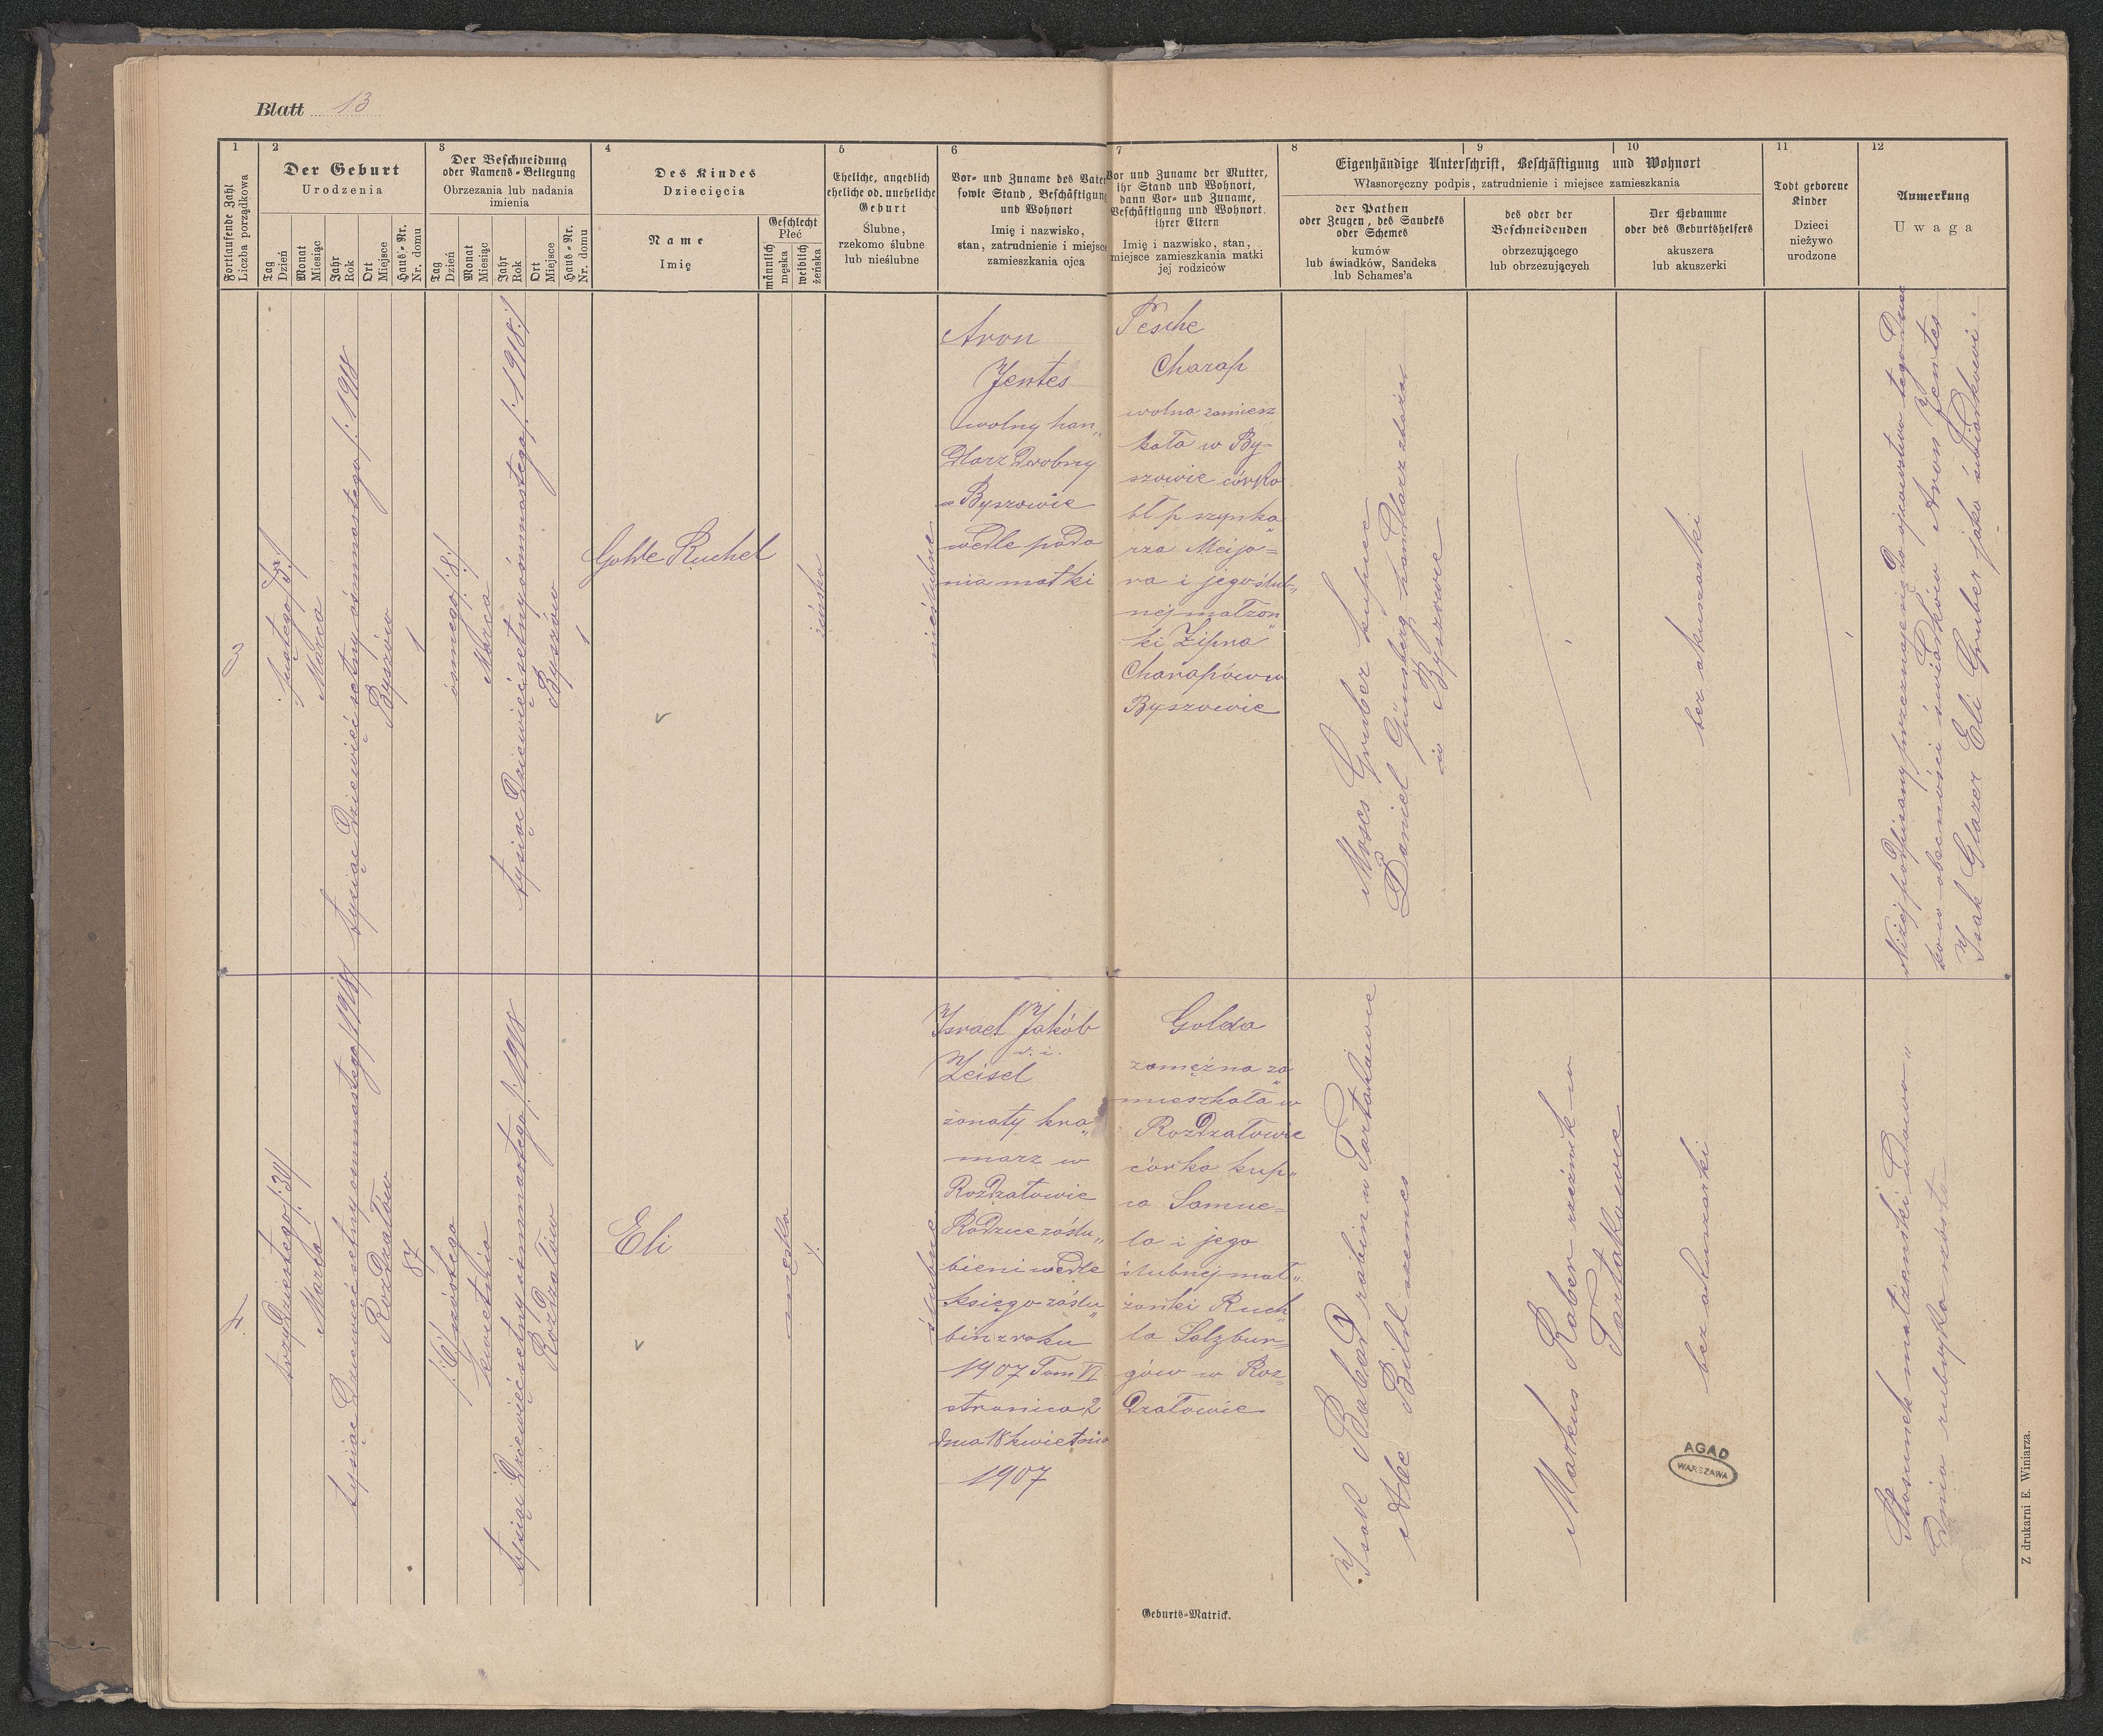 Blatt 13
1
Fortlaufende Zahl
Liczba porządkowa
2
Der Geburt
Urodzenia
Tag
Dzień
Monat
Miesiąc
Jahr
Rok
Ort
Miejsce
Haus-Nr.
Nr. domu
3
Der Beschneidung
oder Namens-Beilegung
Obrzezania lub nadania
imienia
Tag
Dzień
Monat
Miesiąc
Jahr
Rok
Ort
Miejsce
Haus-Nr.
Nr. domu
4
Des Kindes
Dziecięcia
Name
Imię
Geschlecht
Płeć
männlich
męska
weiblich
żeńska
5
Eheliche, angeblich
eheliche od. uneheliche
Geburt
Ślubne,
rzekomo ślubne
lub nieślubne
6
Vor- und Zuname des Vaters
sowie Stand, Beschäftigung
und Wohnort
Imię i nazwisko,
stan, zatrudnienie i miejsce
zamieszkania ojca
7
Vor und Zuname der Mutter,
ihr Stand und Wohnort,
dann Vor- und Zuname,
Beschäftigung und Wohnort.
ihrer Eltern
Imię i nazwisko, stan,
miejsce zamieszkania matki
jej rodziców
8
9
10
Eigenhändige Unterschrift, Beschäftigung und Wohnort
Własnoręczny podpis, zatrudnienie i miejsce zamieszkania
der Pathen
oder Zeugen, des Sandeks
oder Schemes
kumów
lub świadków, Sandeka
lub Schames'a
des oder der
Beschneidenden
obrzezującego
lub obrzezujących
Der Hebamme
oder des Geburtshelfers
akuszera
lub akuszerki
11
Todt geborene
Kinder
Dzieci
nieżywo
urodzone
12
Anmerkung
Uwaga
3
piątego /:5:/
Marca
tysiąc dziewięćsetnyośmnastego /:1918
Byszów
1
ósmego /:8:/
Marca
tysiąc dziewięćsetnyośmnastego /:1918:/
Byszów
1
Golde Ruchel
żeńska
nieślubne
Aron
Jentes
wolny han„
dlarz drobny
w Byszowie
wedle poda
nia matki
Pesche
Charap
wolna zamiesz
kała w By=
szowie córka
bł p szynka
rza Mejo=
ra i jego ślub„
nej małżon
ki Zipra
Charapów w
Byszowie
Moses Gruber kupiec
Daniel Günsberg handlarz zboża
w Byszowie
bez akuszerki
Niżej podpisany przeznaję do ojcowstwa tego
kowo obecności świadków Aron Jentes
Isak Glazer Eli Gruber jako świadkowi.
4
trzydziestego /:30/
Marca
tysiąc dziewięćsetny osmnastego /1918/
Rozdżałów
87
/:6/ szóstego
kwietnia
tysiąc dziewięćsetny ośmnastego /:1918
Rozdżałów
Eli
męska
/.
ślubne
Israel Jakób
d. i.
Zeisel
żonaty kra„
marz w
Rozdżałowie
Rodzice zaślu„
bieni wedle
księgo zaślu„
bin z roku
1907 Tom VI
stronica 2
dnia 18 kwietnia
1907
Golda
zamężna za„
mieszkała w
Rozdżałowie
córka kup„
ca Samue=
la i jego
ślubnej mał„
żonki Ruch
la Salzbur=
gów w Roz=
dżałowie
Isak Babad rabin w Tartakowie
Abe Bihl szames
Markus Raber rzeźnik w
Tartakowie
bez akuszerki
Stosunek małżeński udowo„
dnia rubryka szósta
AGAD
WARSZAWA
Geburts-Matrick.
Z drukarni E. Winiarza.